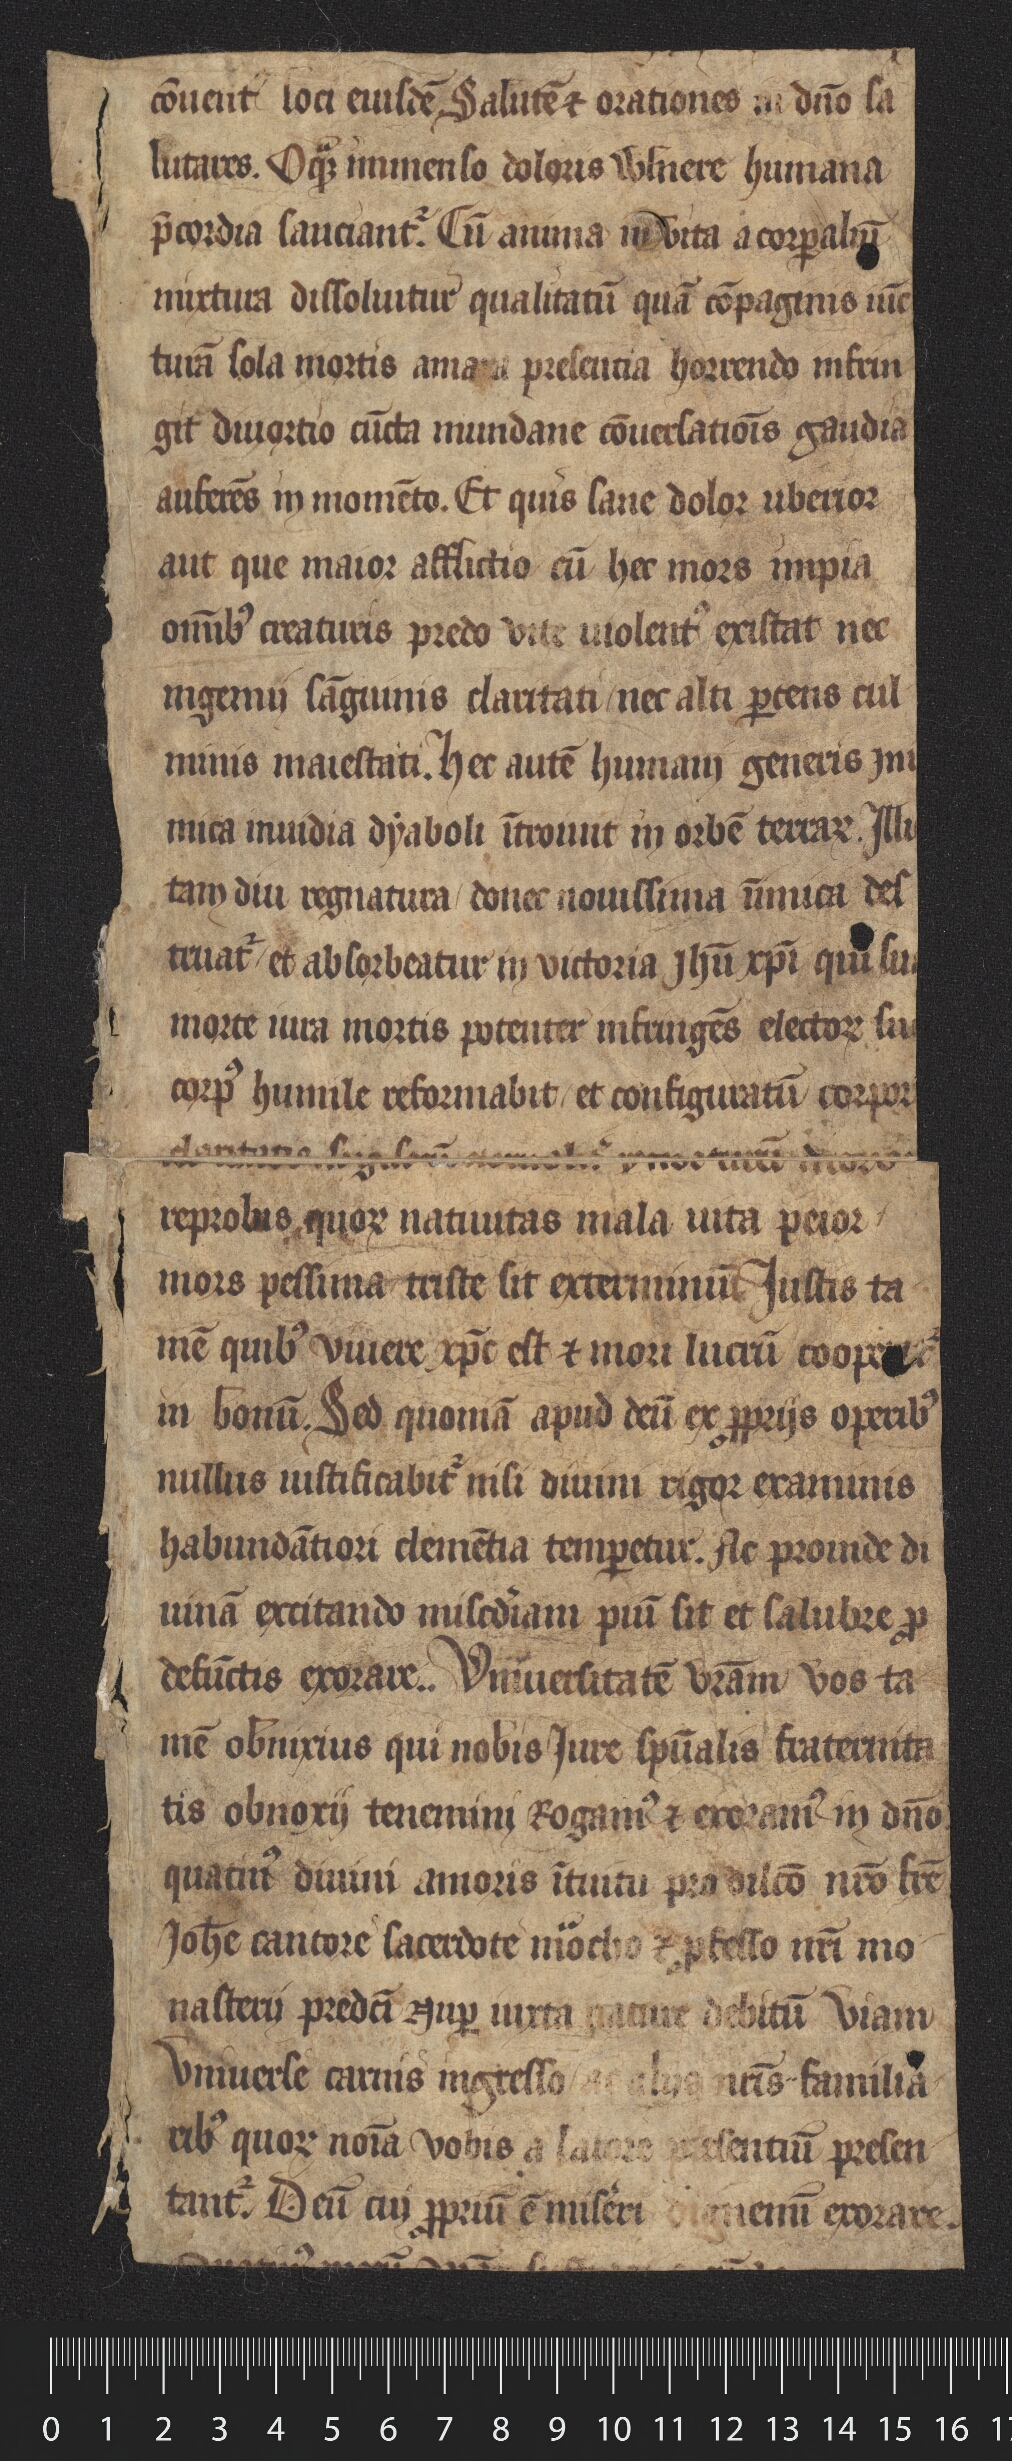 cōuent loci eiusdē Salutē ⁊ orationes in dn̄o sa
lutares. Oq̄ꝫ immenso doloris vlnere humana
p̄cordia sauciantᷣ. Cū anima inuita a corꝑaliū
mixtura dissoluitur qualitatū quā cōpaginis iūc
turā sola mortis amara presencia horrendo infrin
git diuortio cūcta mundane cōuersatiōis gaudia
auferēs in momēto. Et quis sane dolor uberior
aut que maior afflictio cū hec mors impia
om̄ibꝰ creaturis predo vite uiolentꝰ existat nec
ingenui sāguinis claritati nec alti ꝑcens cul
minis maiestati. Hec autē humani generis ini
mica inuidia dyaboli ītrouit in orbē terraꝝ. Illi
tam diu regnatura / donec nouissima inimica des
truatᷣ / et absorbeatur in victoria Jhū xp̄i qui sua
morte iura mortis potenter infringēs electoꝝ suo
corpꝰ humile reformabit / et configuratū corpor
reprobis quoꝝ natiuitas mala uita peior /
mors pessima triste sit exterminiū Justis ta
mē quibꝰ viuere xp̄c est ⁊ mori lucrū cooperatᷣ
in bonū. Sed quoniā apud deū ex ꝓprijs operibꝰ
nullus iustificabitᷣ nisi diuini rigor examinis
habundātiori clemētia temꝑetur. Ac proinde di
uinā excitando misc̄diam piū sit et salubre ꝓ
defūctis exorare.. Vniuersitatē vr̄am vos ta
mē obnixius qui nobis Jure sp̄ualis fraternita
tis obnoxij tenemini Rogamꝰ ⁊ exoramꝰ in dn̄o
quatinꝰ diuini amoris ītuitu pro dilc̄o nr̄o fr̄e
Joh̄e cantore sacerdote mōcho ⁊ ꝓfesso nr̄i mo
nasterij predc̄i nuꝑ iuxta nature debitū viam
vniuerse carnis ingresso ac alijs nr̄is familia
ribꝰ quoꝝ noīa vobis a latore presentiū presen
tantᷣ. Deū cui ꝓpriū ē miseri dignemī exorare.